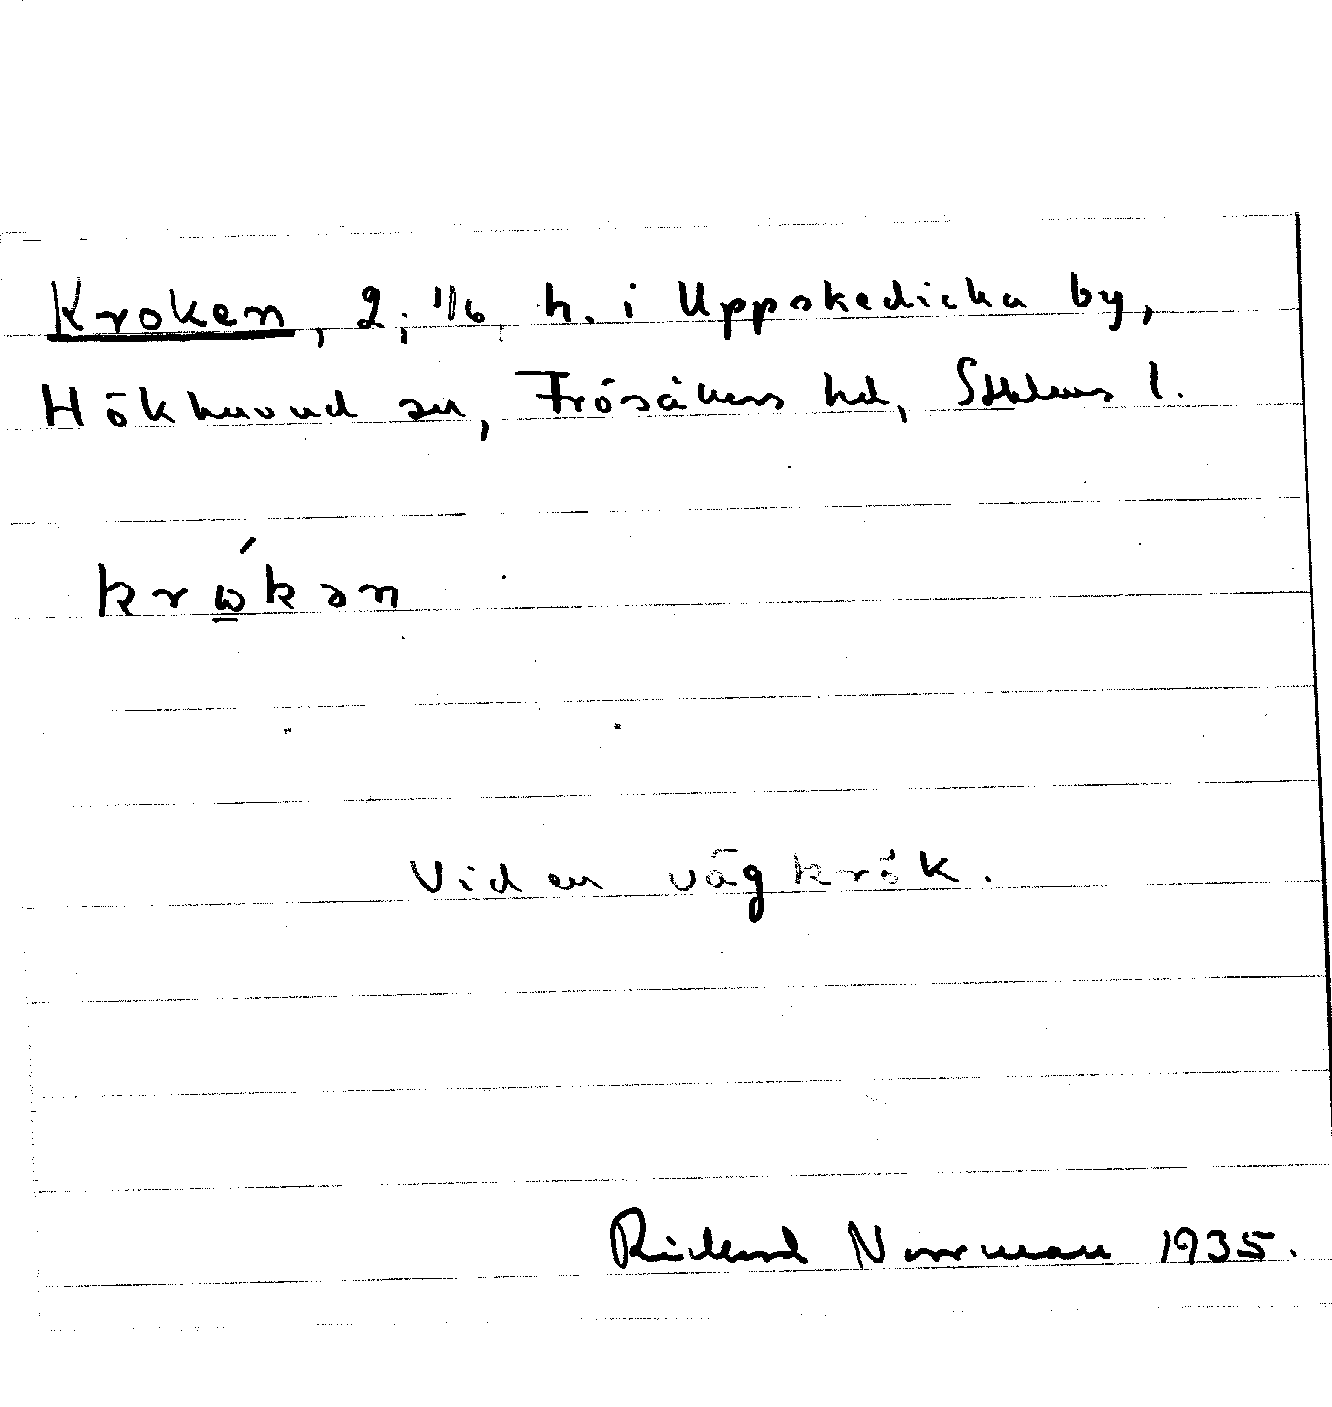 Kroken, 2; 1/6 h. i Uppskedicka by,
Hökhuvud sn, Frösåkers hd, Sthlms l.
krώ̲kən
Vid en vägkrök.
Richard Norrman 1935.